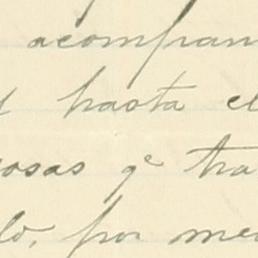 acompan
hasta el
osas qe tra
lo, por me